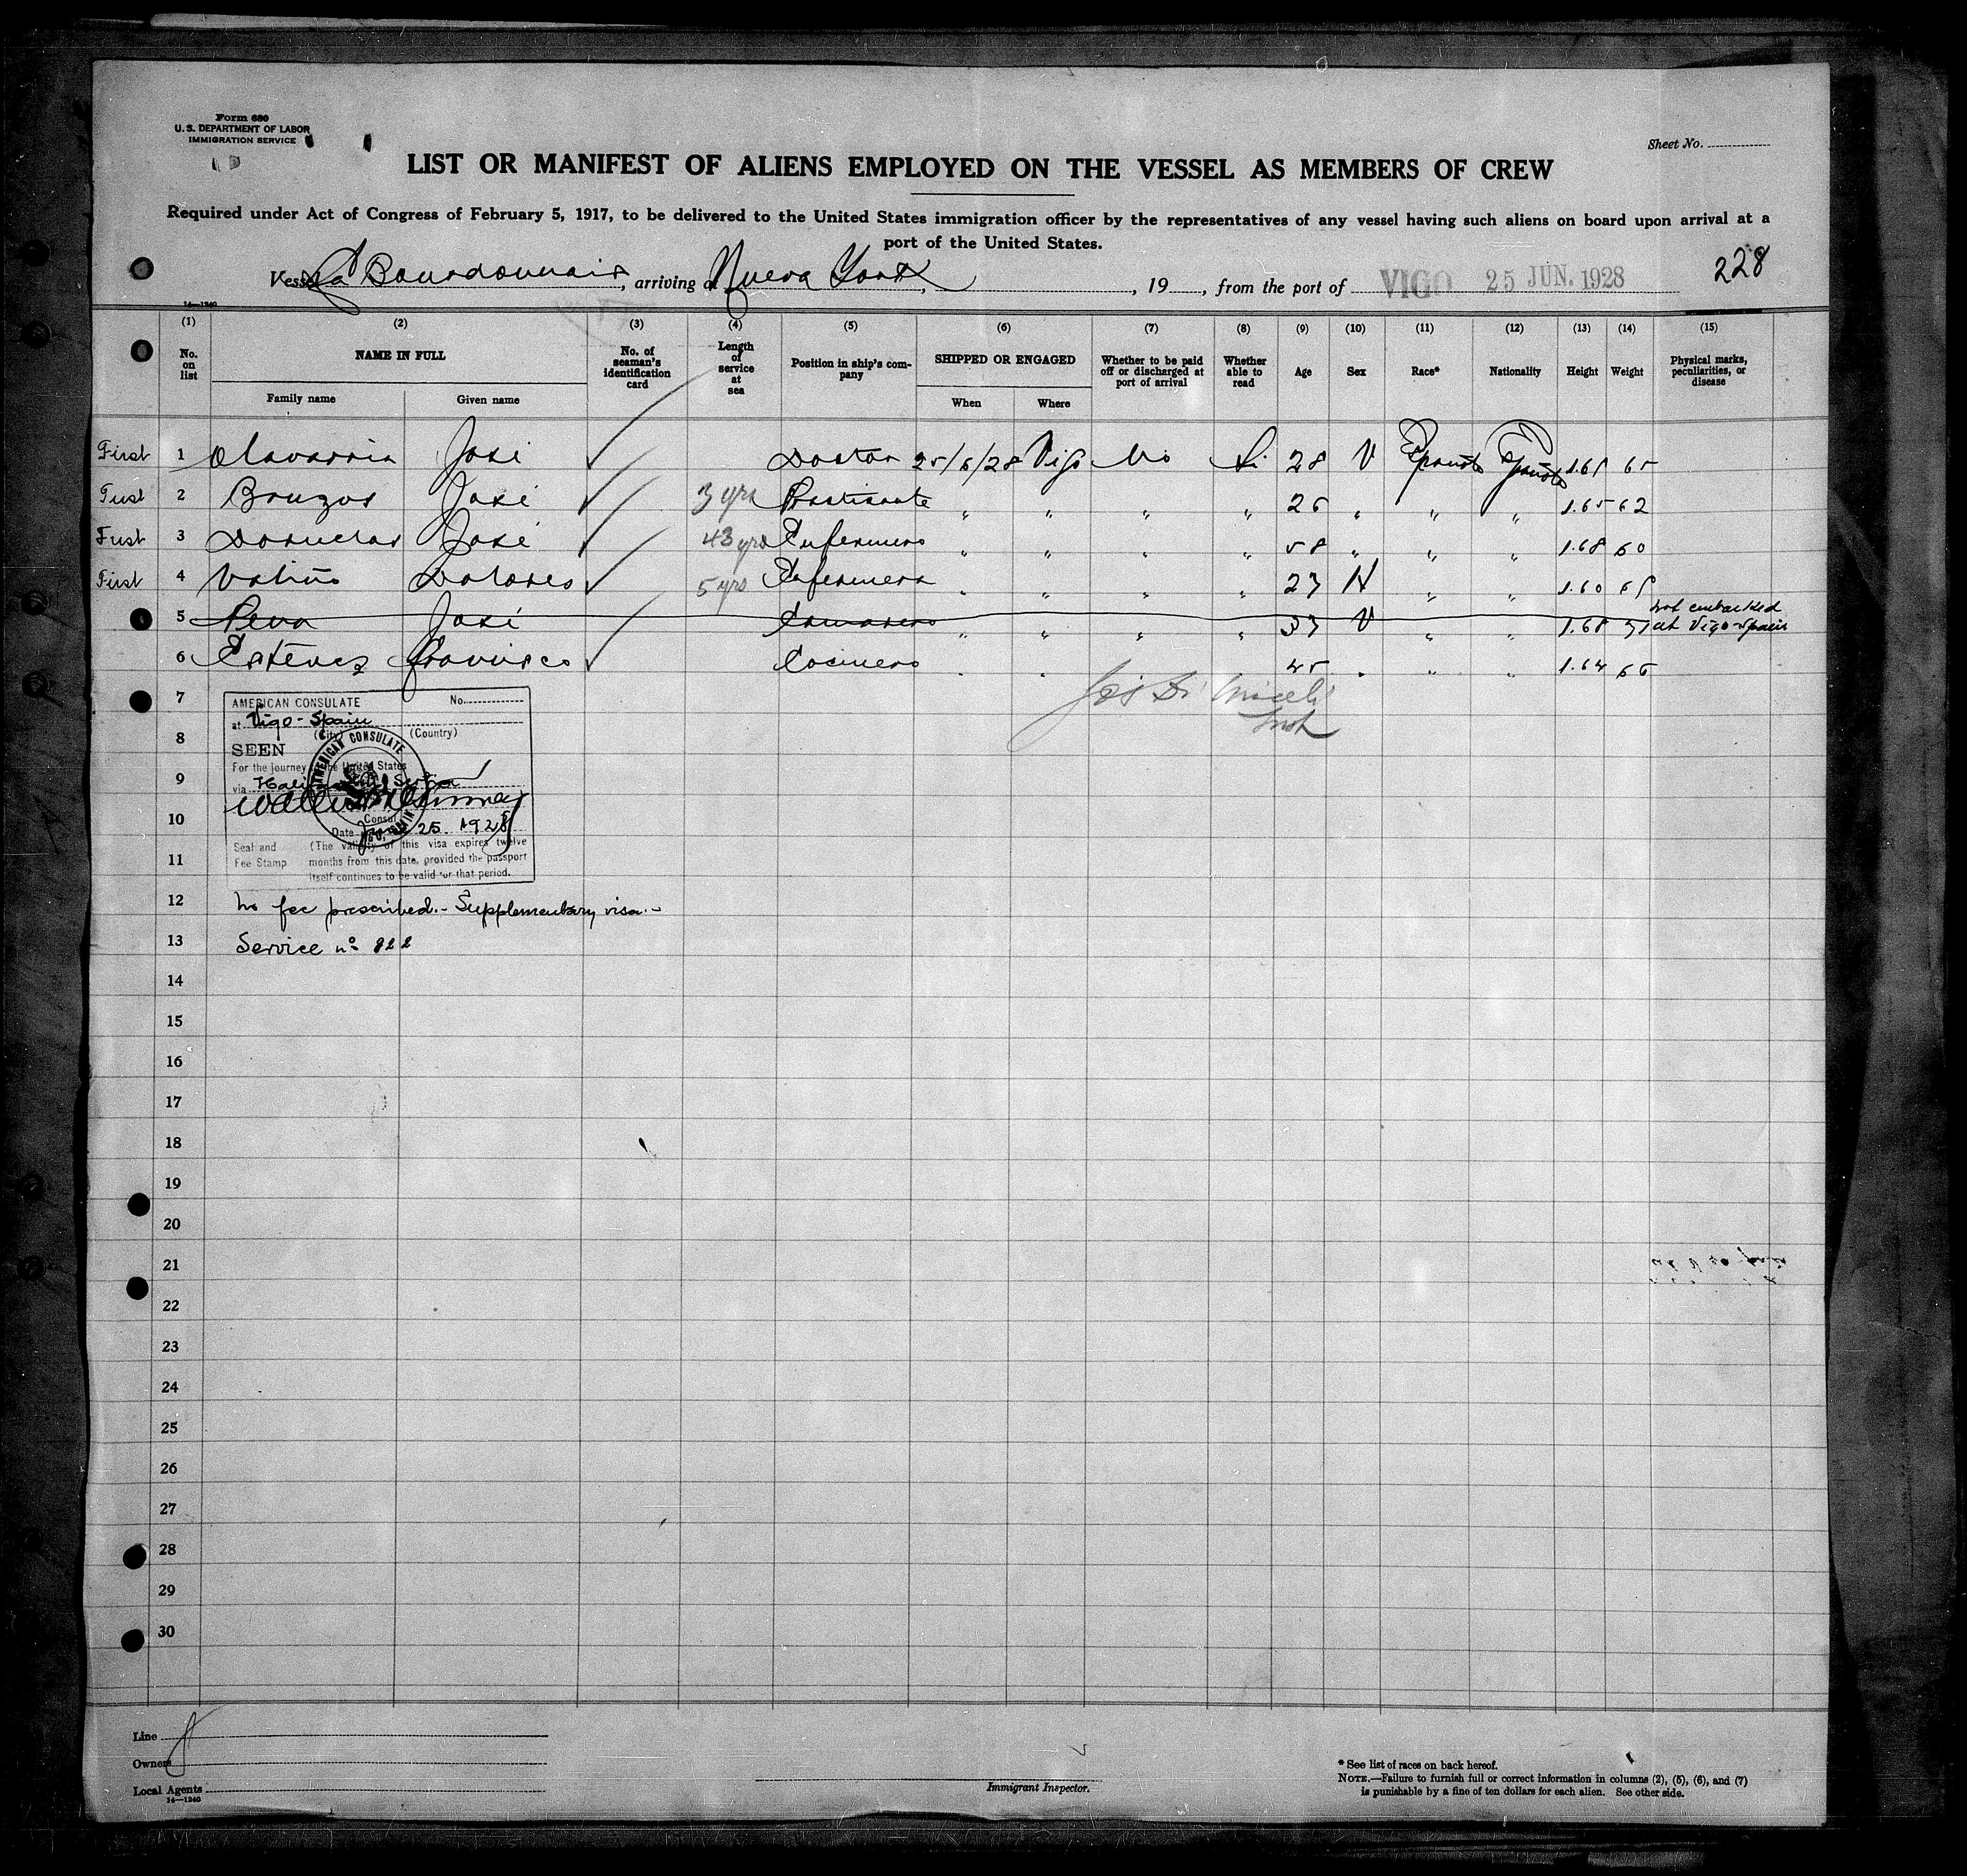 Form 680
U. S. DEPARTMENT OF LABOR
IMMIGRATION SERVICE
Sheet No.
LIST OR MANIFEST OF ALIENS EMPLOYED ON THE VESSEL AS MEMBERS OF CREW
Required under Act of Congress of February 5, 1917, to be delivered to the United States immigration officer by the representatives of any vessel having such aliens on board upon arrival at a
port of the United States.
228
Vessel La Bourdonnais, arriving at Nueva York, 19, from the port of VIGO 25 JUN. 1928
14—1240
(1) (2) (3) (4) (5) (6) (7) (8) (9) (10) (11) (12) (13) (14) (15)
No. on list NAME IN FULL No. of seaman's identification card Length of service at sea Position in ship's company SHIPPED OR ENGAGED Whether to be paid off or discharged at port of arrival Whether able to read Age Sex Race* Nationality Height Weight Physical marks, peculiarities, or disease
Family name Given name When Where
First 1 Olavarria José Doctor 25/6/28 Vigo No Si 28 V Española Española 1.65 65
First 2 Bouzos José 3 yrs Practicante " " " " 26 " " " 1.65 62
First 3 José 43 yrs Enfermero " " " " 58 " " " 1.68 60
First 4 Valiño Dolores 5 yrs Enfermera " " " " 27 H " " 1.60 65
5 Pena José Camarero " " " " 37 V " " 1.68 71 not embarked
at Vigo-Spain
6 Estévez Francisco Cocinero " " 45 " " " 1.64 66
7
8
9
10
11
12
13
AMERICAN CONSULATE No.
at Vigo - Spain
(City) (Country)
SEEN
For the journey to the United States
via
AMERICAN CONSULATE
VIGO, SPAIN
Consul
Date June 25. 1928
Seal and Fee Stamp
(The validity of this visa expires twelve
months from this date, provided the passport
itself continues to be valid for that period.
No fee prescribed.- Supplementary visa.-
Service nº 822
14
15
16
17
18
19
20
21
22
23
24
25
26
27
28
29
30
Line
Owners
Local Agents
14—1240
Immigrant Inspector.
* See list of races on back hereof.
NOTE.—Failure to furnish full or correct information in columns (2), (5), (6), and (7)
is punishable by a fine of ten dollars for each alien. See other side.